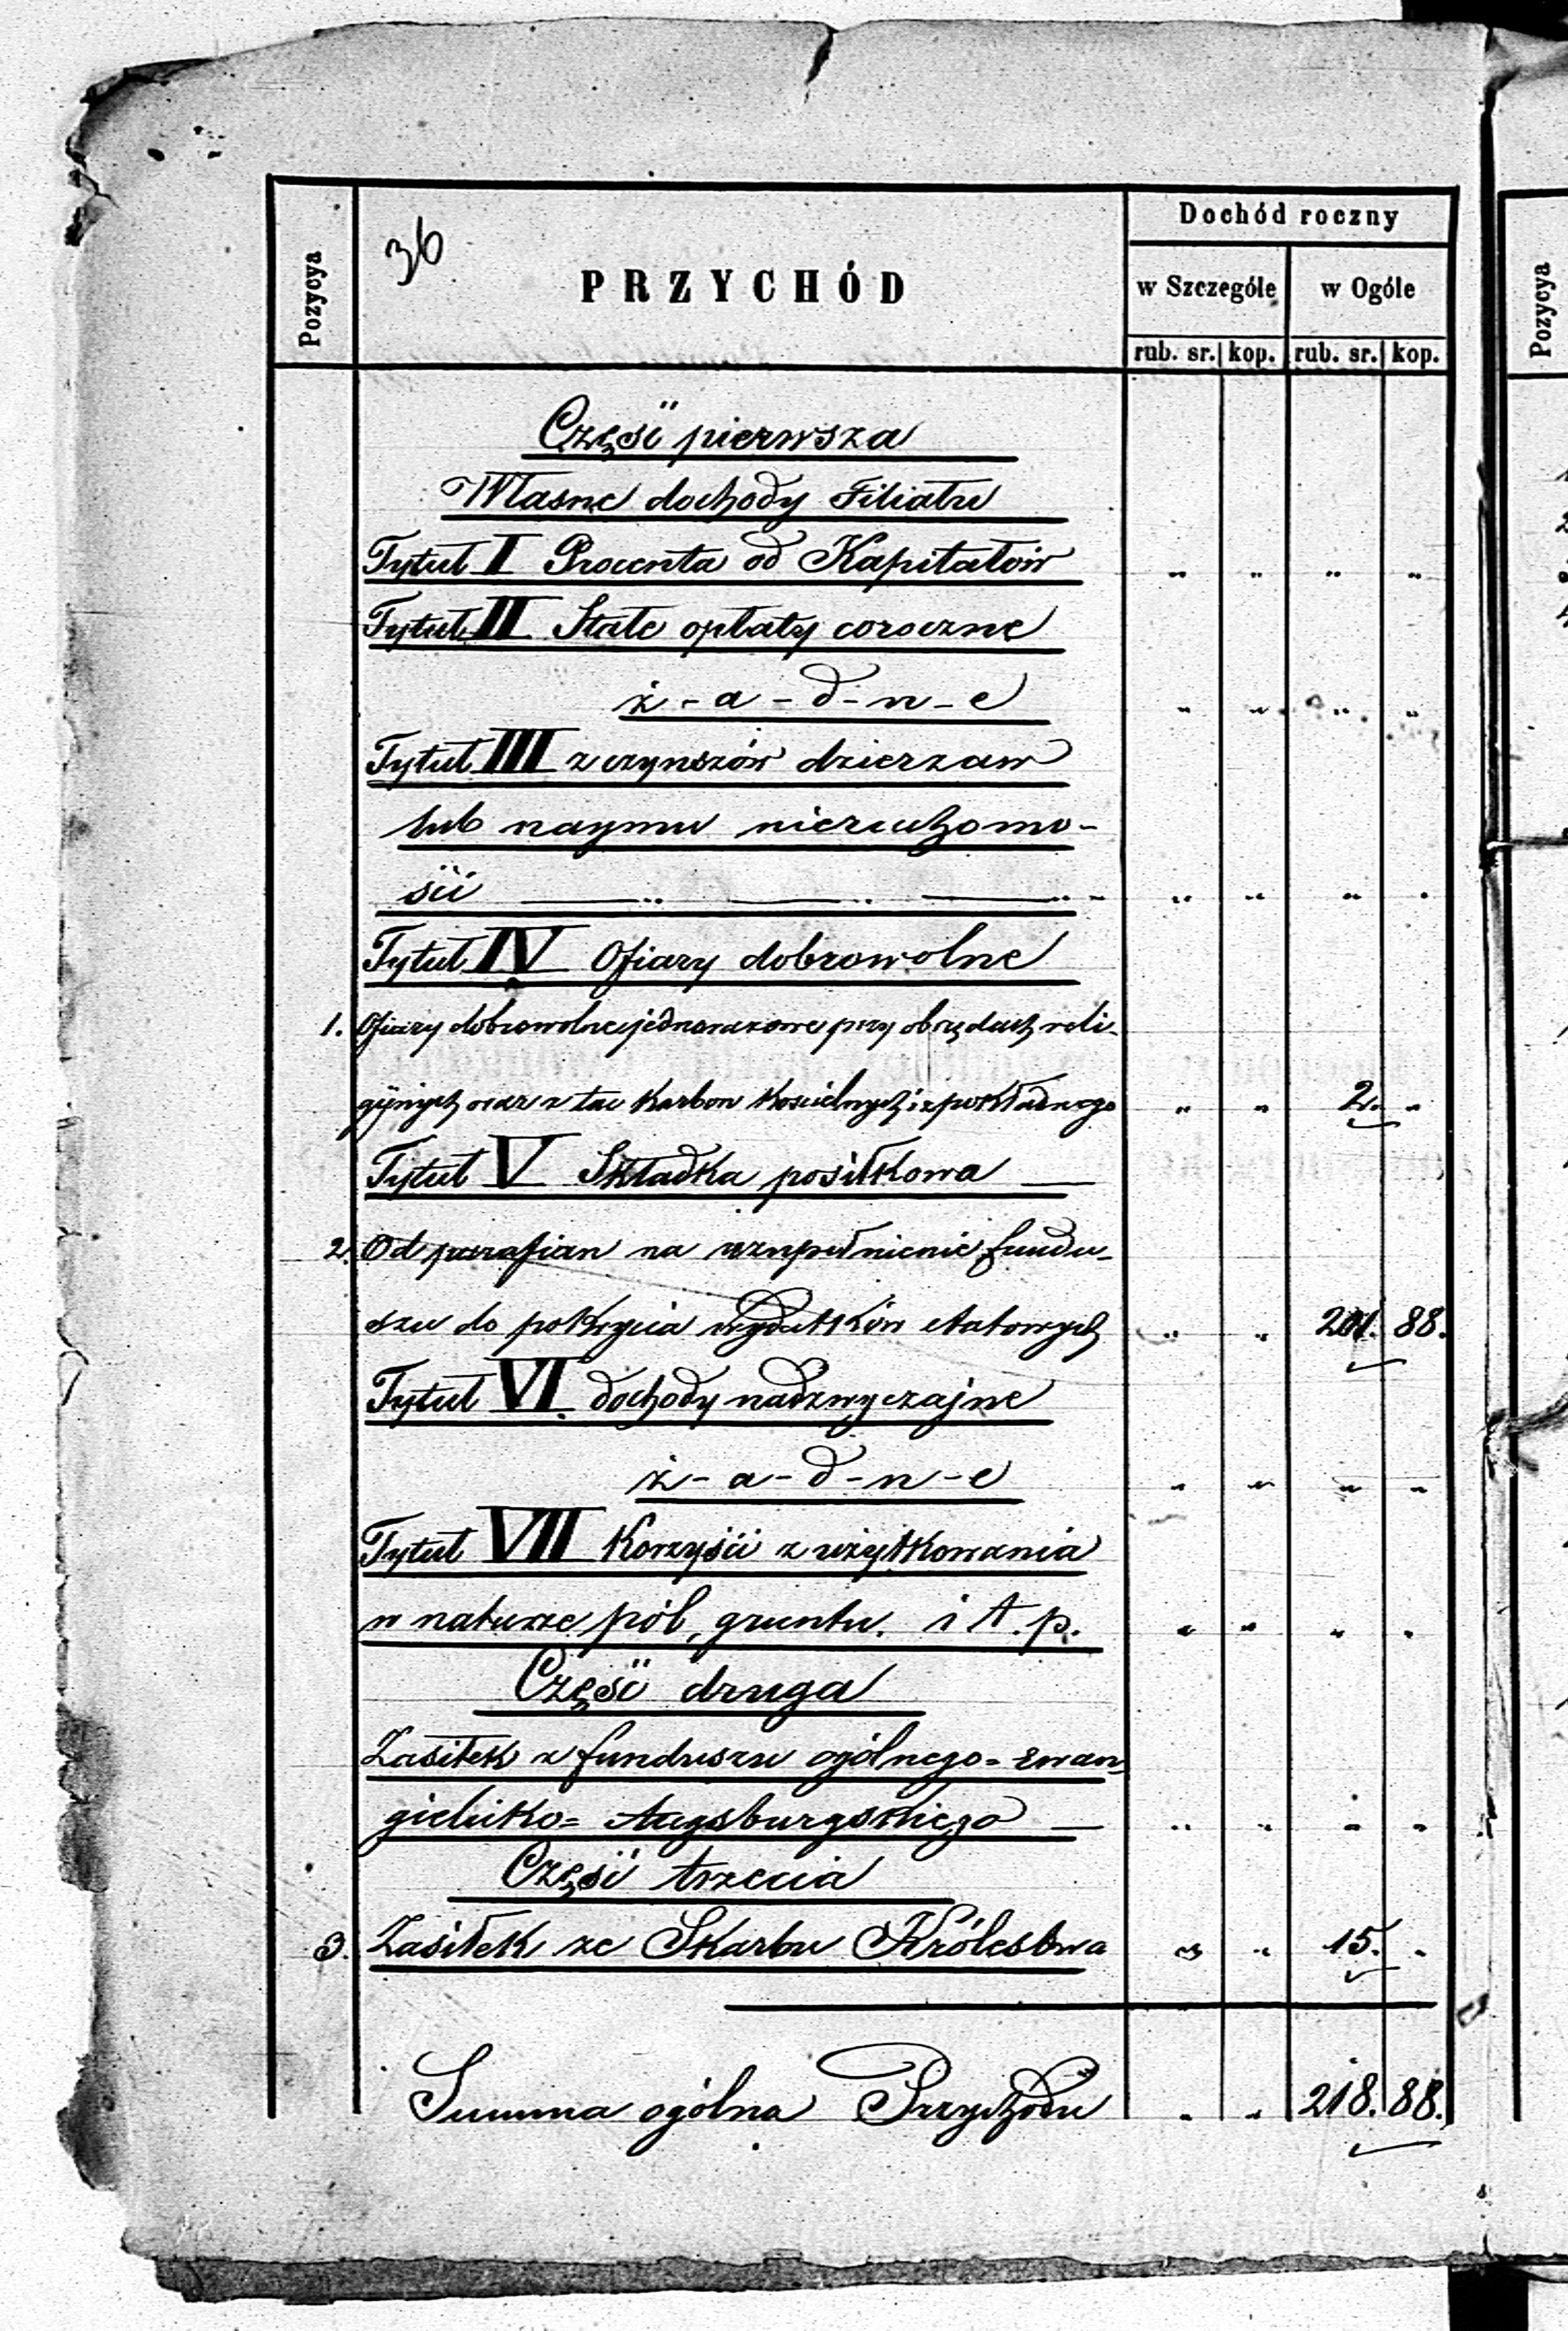 36
Pozycya
PRZYCHÓD
Dochód roczny
w Szczególe
w Ogóle
rub. sr. kop. rub. sr. kop.
Pozycya
Część pierwsza
Własne dochody Filiału
Tytuł I Procenta od Kapitałów " " " "
Tytuł II Stałe opłaty coroczne
ż-a-d-n-e " " " "
Tytuł III z czynszów dzierzaw
lub naymu nieruchomo-
ści " " " "
Tytuł IV Ofiary dobrowolne
1. Ofiary dobrowolne jednorazowe przy obrzędach reli-
gijnych oraz z tac Karbon Kościelnych i z pokładnego " " 2. "
Tytuł V Składka posiłkowa —
2. Od parafian na uzupełnienie fundu-
szu do pokrycia wydatków etatowych " " 201. 88.
Tytuł VI. dochody nadzwyczajne
ż-a-d-n-e " " " "
Tytuł VII Korzyści z użytkowania
w naturze pól, gruntu. i t. p. " " " "
Część druga
Zasiłek z funduszu ogólnego = Ewan-
gielicko = Augsburgskiego — " " " "
Część trzecia
3. Zasiłek ze Skarbu Królestwa " " 15. "
Summa ogólna Przychodu " " 218. 88.